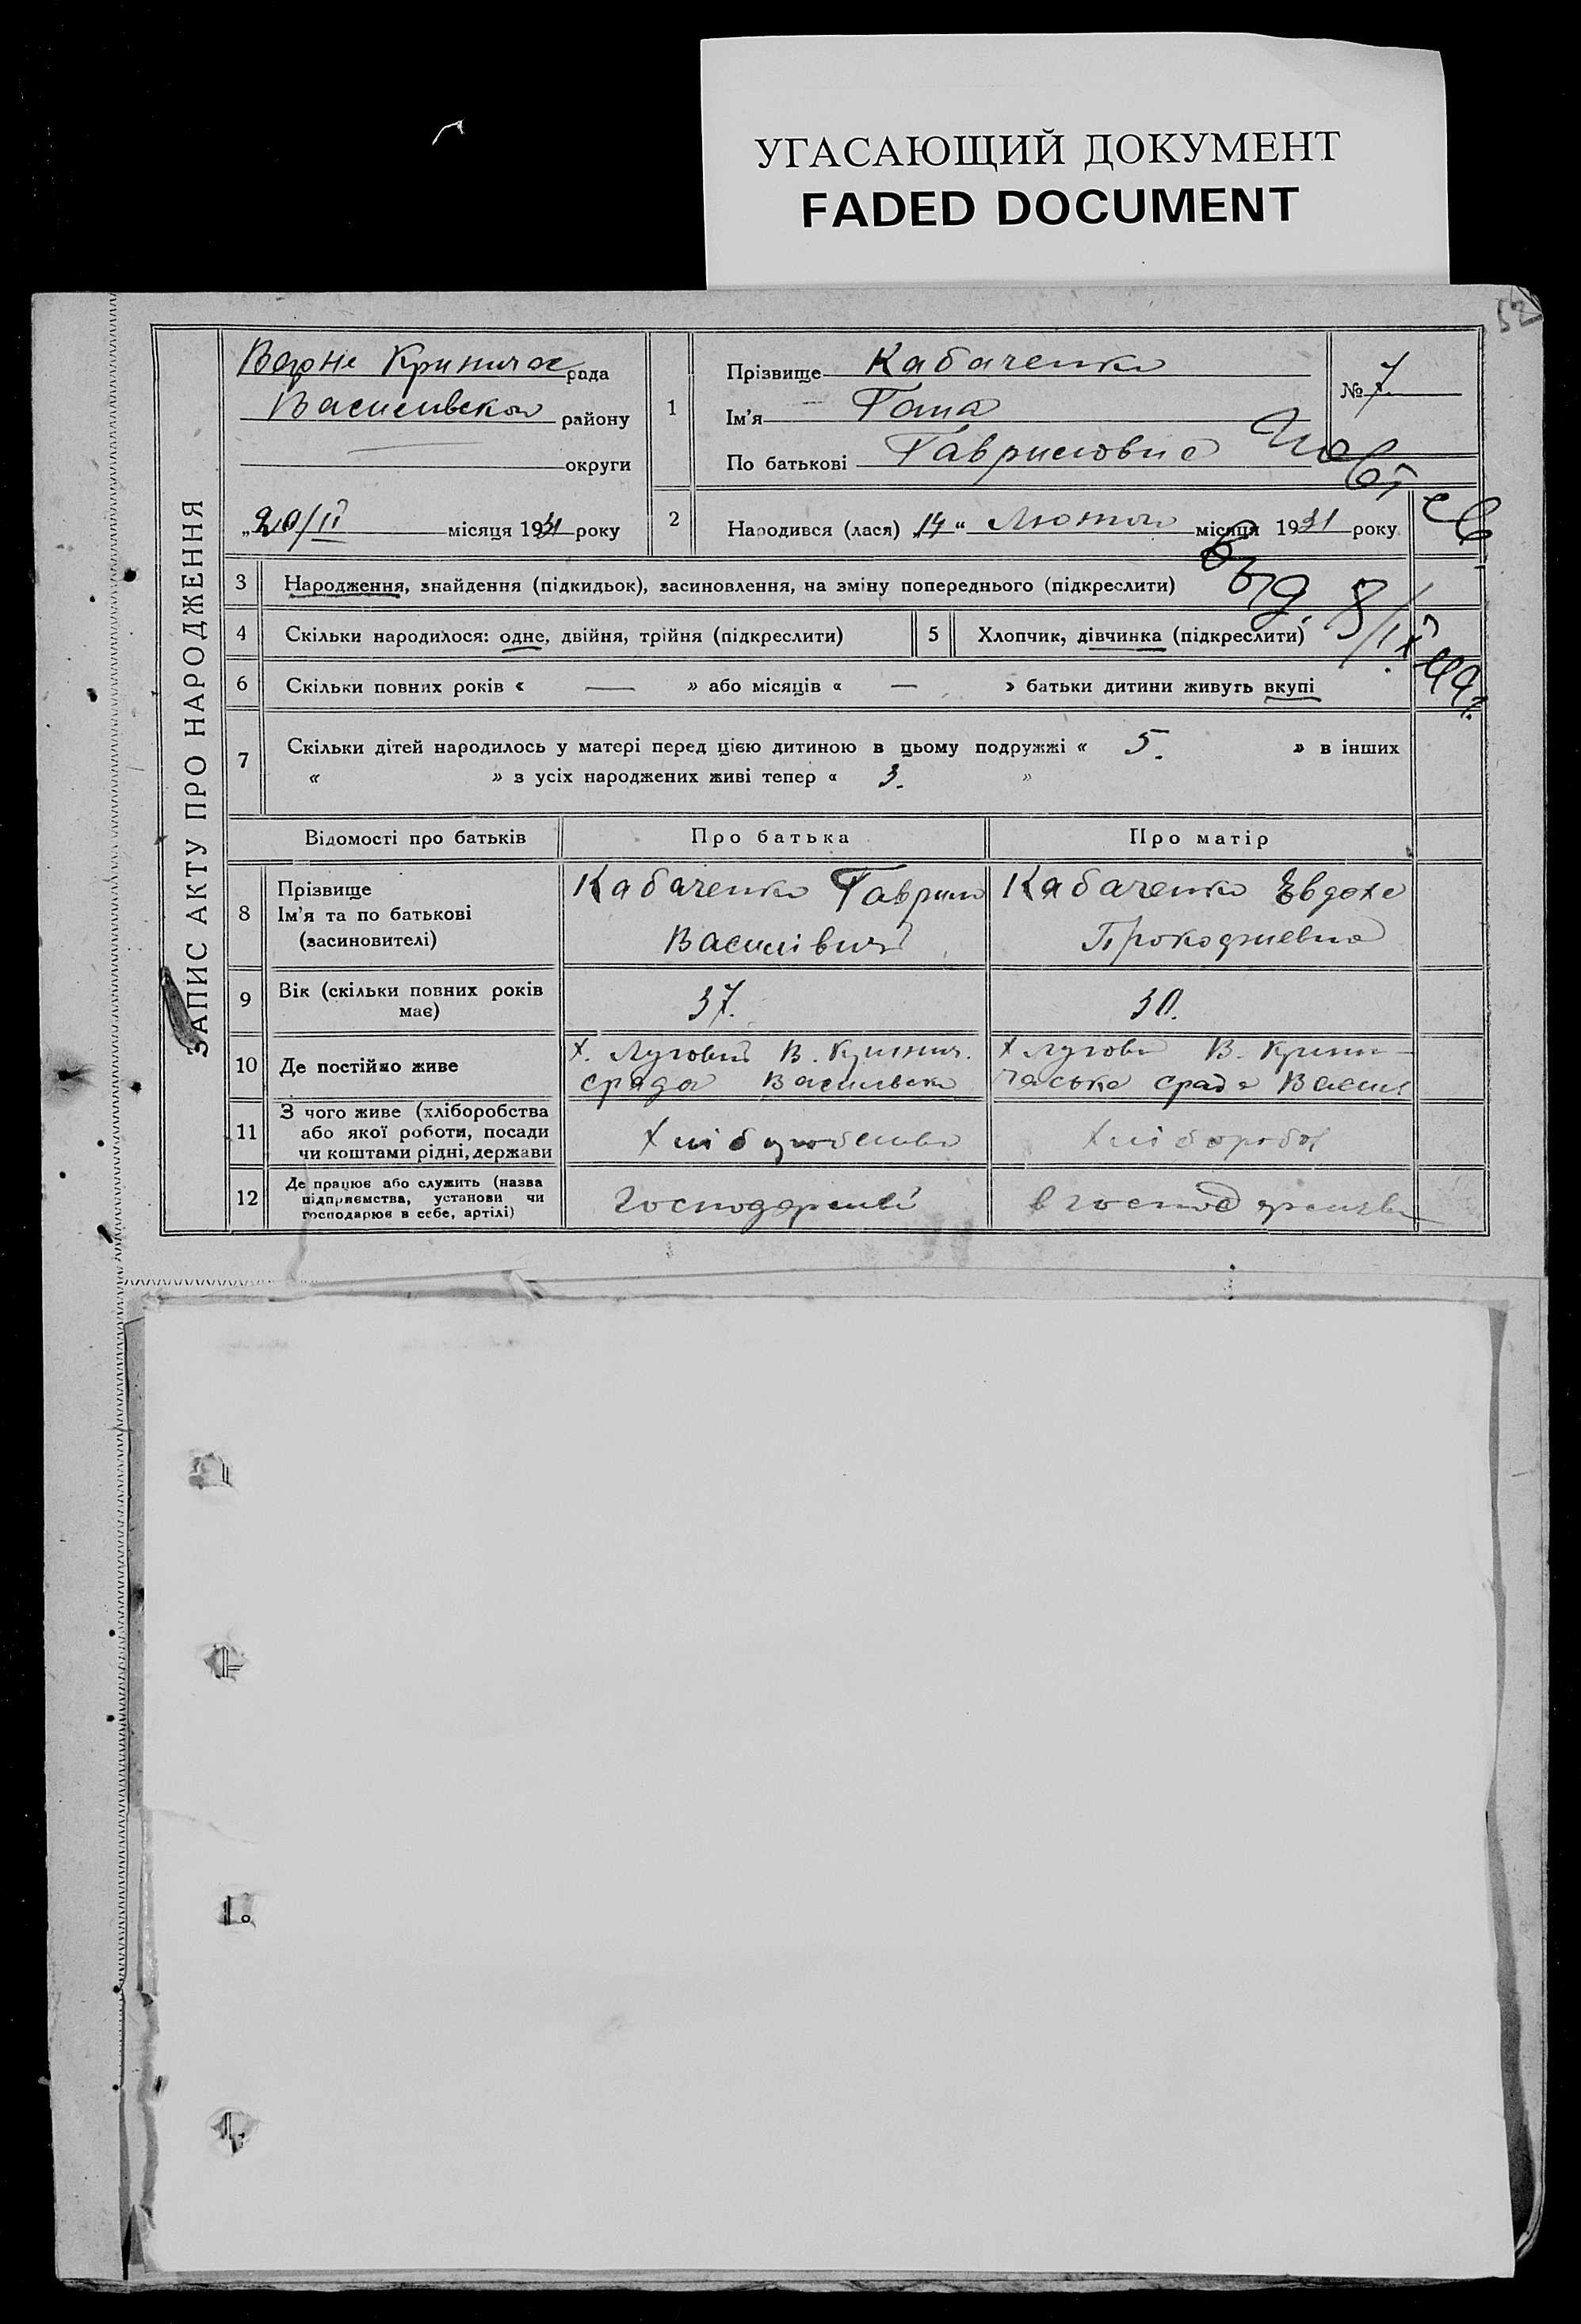 УГАСАЮЩИЙ ДОКУМЕНТ
FADED DOCUMENT
52
ЗАПИС АКТУ ПРО НАРОДЖЕННЯ
рада
району
округи
„20/ІІ місяця 1931 року
1
Прізвище Кабаченко
Ім’я
По батькові Гавриловна
№ 7
2
Народився (лася) „14“ Лютого місяця 1931 року
3 Народження, знайдення (підкидьок), засиновлення, на зміну попереднього (підкреслити)
4 Скільки народилося: одне, двійня, трійня (підкреслити)
5 Хлопчик, дівчинка (підкреслити)
6 Скільки повних років « — » або місяців « — » батьки дитини живуть вкупі
7 Скільки дітей народилось у матері перед цією дитиною в цьому подружжі « 5. » в інших
« » з усіх народжених живі тепер « 3. »
Відомості про батьків Про батька Про матір
8 Прізвище
Ім’я та по батькові
(засиновителі)
Кабаченко Гаврило
Василівич
Кабаченко Євдоха
9 Вік (скільки повних років
має)
37.
30.
10 Де постійно живе
х. Луговий В. Кринич.
х Лугови В. Крини-
часька срада Васил
11 З чого живе (хліборобства
або якої роботи, посади
чи коштами рідні, держави
Хліборобство
12 Де працює або служить (назва
підприємства, установи чи
господарює в себе, артілі)